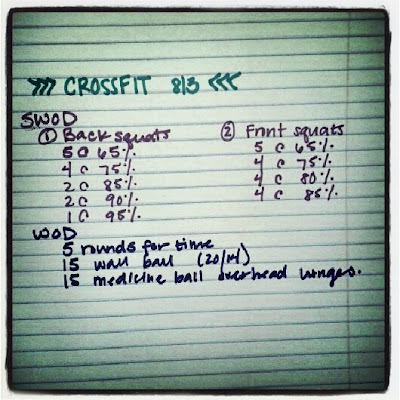 >>> CROSSFIT 8/3 <<<
SWOD
① Back squats
5 @ 65%
4 @ 75%
2 @ 85%
2 @ 90%
1 @ 95%
② Front squats
5 @ 65%
4 @ 75%
4 @ 80%
4 @ 85%
WOD
5 rounds for time
15 wall ball (20/14)
15 medicine ball overhead lunges.